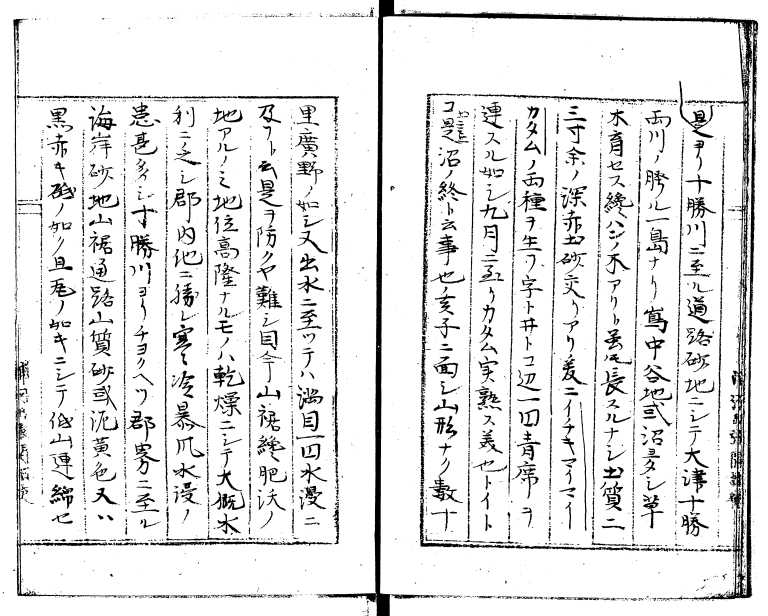 是ヨリ十勝川ニ至ル道路砂地ニシテ大津十勝
両川ノ跨ル一島ナリ嶌中谷地或沼多シ草
木育セス纔ハンノ木アリト雖モ長スルナシ土質ニ
三寸余ノ深赤土砂交リアリ爰ニイチキマイマイ
カタムノ両種ヲ生ワ字トヰトコ辺一円青席ヲ
連スル如シ九月ニ至リカタム実熟ス義セトイト
コ是沼ノ終ト云事也ノ亥子ニ面シ山形ナク数十
里廣野ノ如シ又出水ニ至ツテハ満目一円水漫ニ
及フト云是ヲ防クヤ難シ目今山裾纔肥沃ノ
地アルノミ地位高隆ナルモノハ乾燥ニシテ大概水
利ニ乏シ郡内他ニ勝レ寒冷暴風水漫ノ
患甚多シ十勝川ヨリチヨクヘツ郡界ニ至ル
海岸砂地山裾通路山質砂或泥黄色又ハ
黒赤キ砥ノ如ク且瓦ノ如キニシテ低山連綿セ